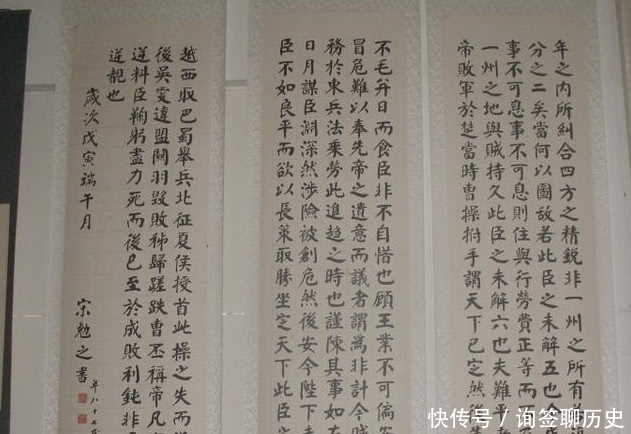 年之内所糾合四方之精銳非一州之所有
分之二矣當何以圖敵若此臣之未解五也
事不可息事不可息則住與行勞費正等而
一州之地與賊持久此臣之未解六也夫難平
帝敗軍於楚當時曹操拊手謂天下已定然
不毛并日而食臣非不自惜也顧王業不可偏
冒危難以奉先帝之遺意而議者謂為非計今賊
務於東兵法乘勞此進趨之時也謹陳其事如
日月謀臣淵深然涉險被創危然後安今陛下
臣不如良平而欲以長策取勝坐定天下此臣
越西取巴蜀舉兵北征夏侯授首此操之失而
後吳更違盟關羽毀敗秭歸蹉跌曹丕稱帝凡
逆料臣鞠躬盡力死而後已至於成敗利鈍非
逆覩也
歲次戊寅端午月
宋勉之書
年八十七
快传号/询签聊历史